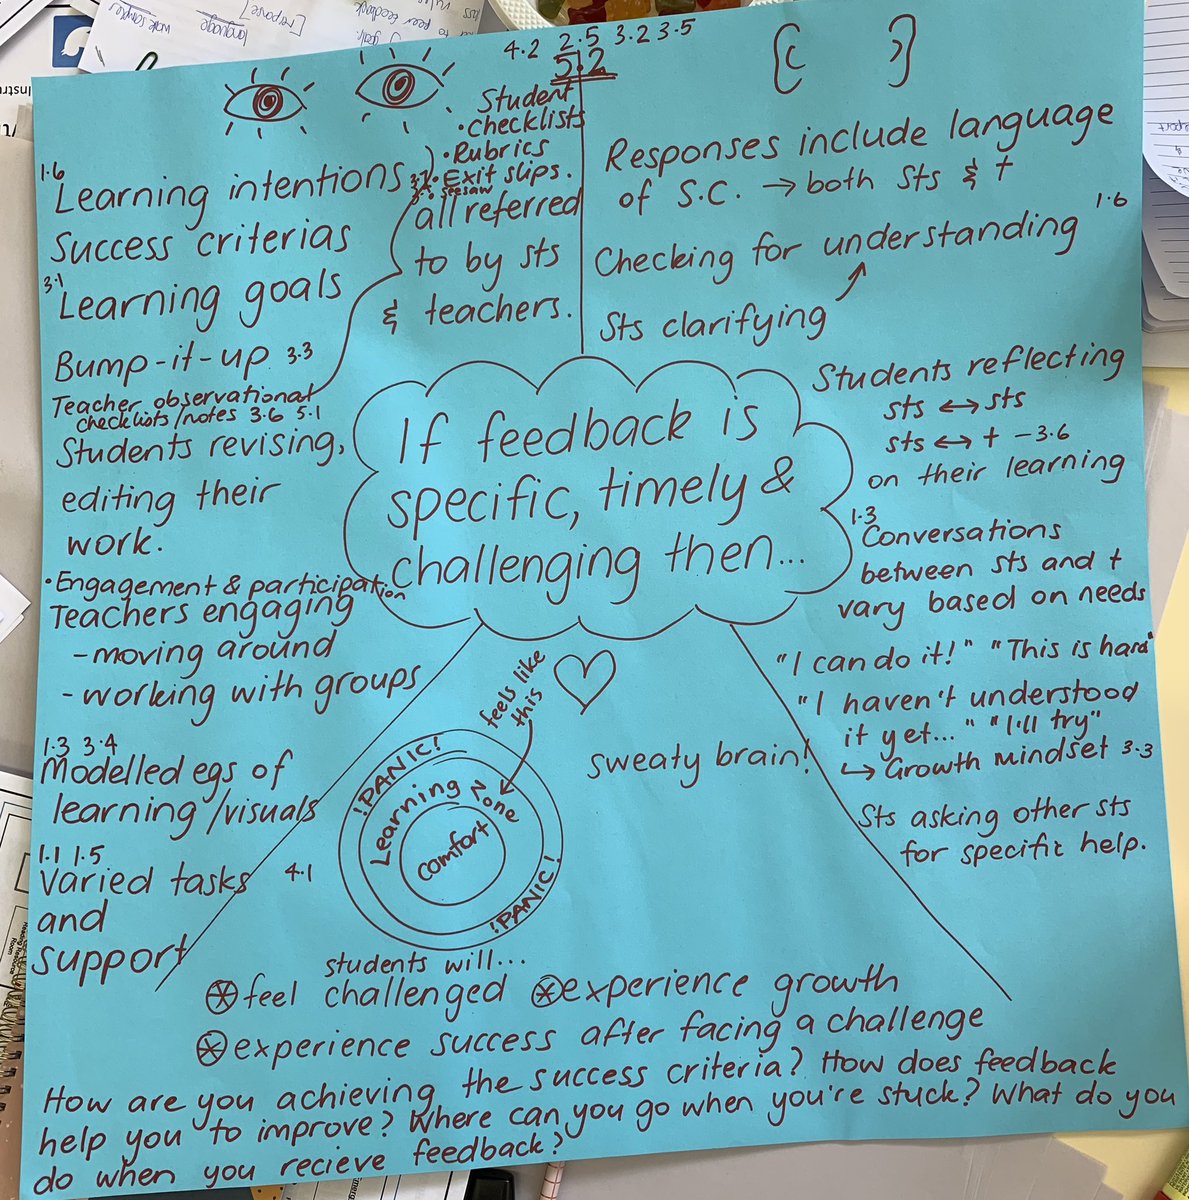 4.2 2.5 3.2 3.5
5.2
Student
• checklists
• Rubrics
• Exit slips.
seesaw
all referred
to by sts
& teachers.
1.6
Learning intentions
Success criterias
3.1
Learning goals
Bump-it-up 3.3
Teacher observational
checklists/notes 3.6 5.1
Students revising,
editing their
work.
• Engagement & participation
Teachers engaging
- moving around
- working with groups
1.3 3.4
Modelled egs of
learning/visuals
1.1 1.5
Varied tasks 4.1
and
support
Responses include language
of S.C. → both sts & t
1.6
Checking for understanding
Sts clarifying
Students reflecting
sts ↔ sts
sts ↔ t - 3.6
on their learning
1.3
Conversations
between sts and t
vary based on needs
"I can do it!" "This is hard"
"I haven't understood
it yet..." "I'll try"
↪ Growth mindset 3.3
Sts asking other sts
for specific help.
If feedback is
specific, timely &
challenging then...
feels like
this
sweaty brain!
!PANIC!
Learning zone
comfort
!PANIC!
students will...
feel challenged experience growth
experience success after facing a challenge
How are you achieving the success criteria? How does feedback
help you to improve? Where can you go when you're stuck? What do you
do when you recieve feedback?
language
work samples